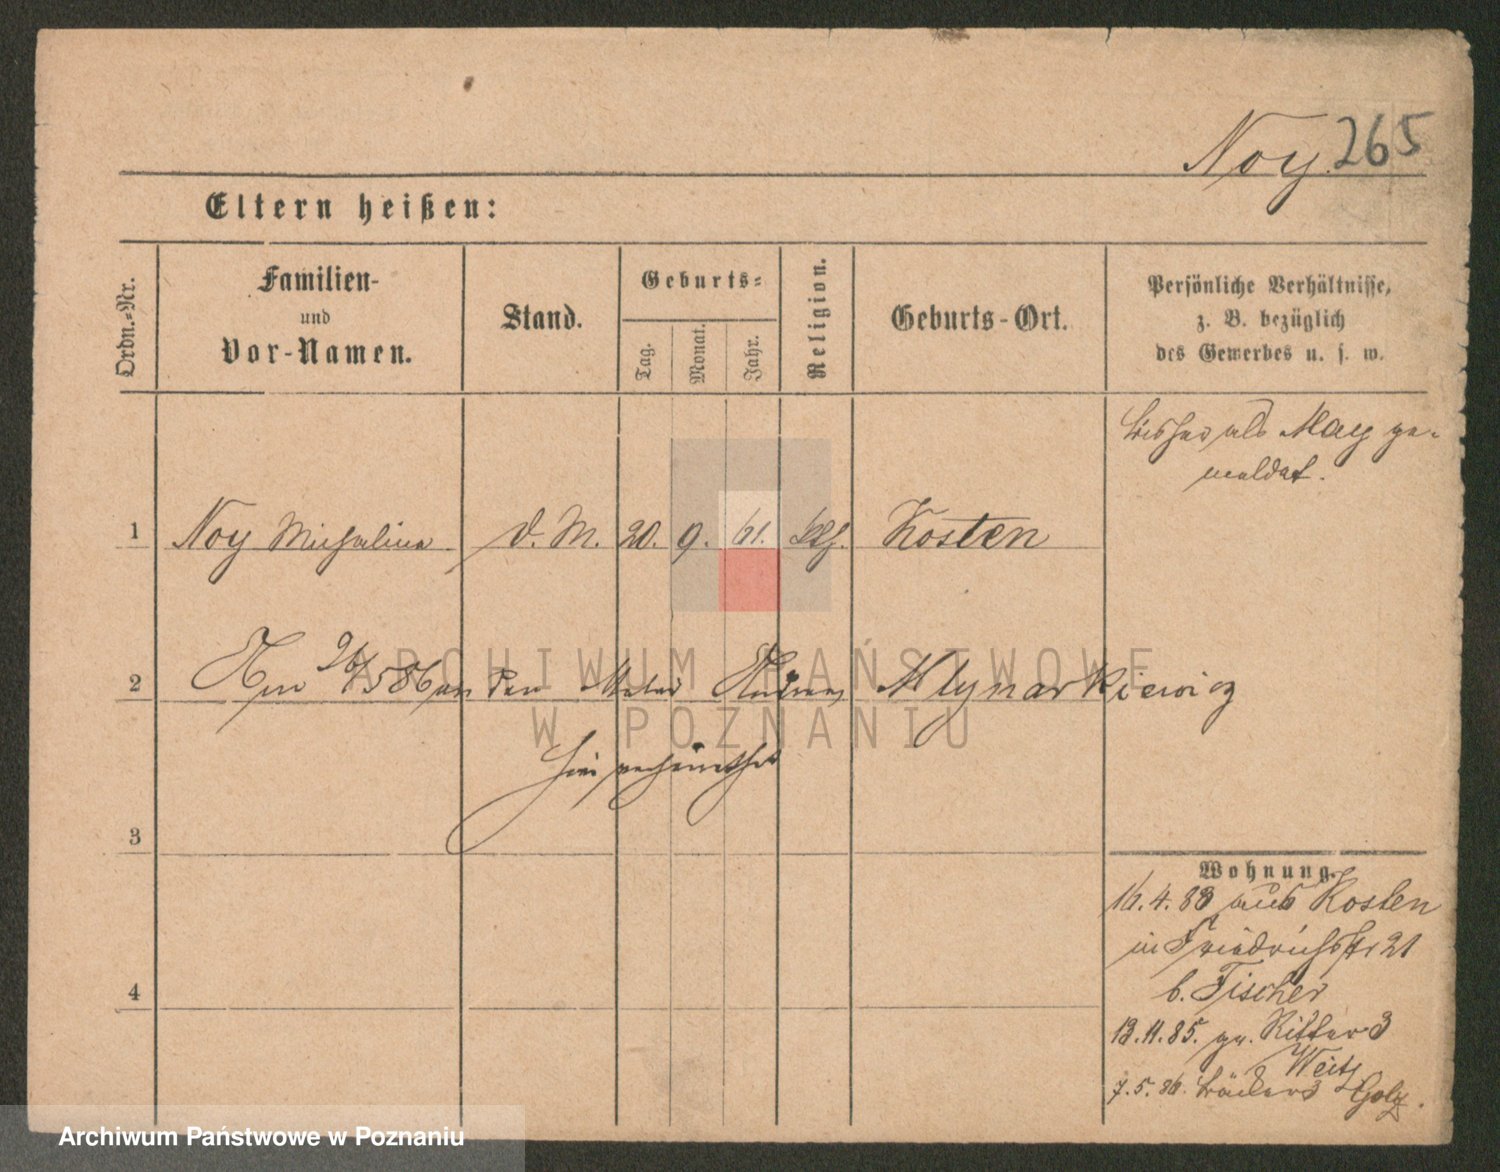 Noy. 265
Eltern heißen:
Ordn.-Nr.
Familien-
und
Vor-Namen.
Stand.
Geburts-
Tag.
Monat.
Jahr.
Religion.
Geburts-Ort.
Persönliche Verhältnisse,
z. B. bezüglich
des Gewerbes u. s. w.
bisher als May ge-
meldet.
1 Noy Michalina d. M. 20. 9. 61. kth. Kosten
2 Am 26/5 86 an den Maler Andreas Mlynarkiewicz
hier verheirathet
3
4
Wohnung.
16. 4. 83 aus Kosten
in Friedrichstr 21
b. Fischer
13. 11. 85. gr. Ritter 3
Weitz
7. 5. 86. Bäcker 3 Golz.
ARCHIWUM PAŃSTWOWE
W POZNANIU
Archiwum Państwowe w Poznaniu